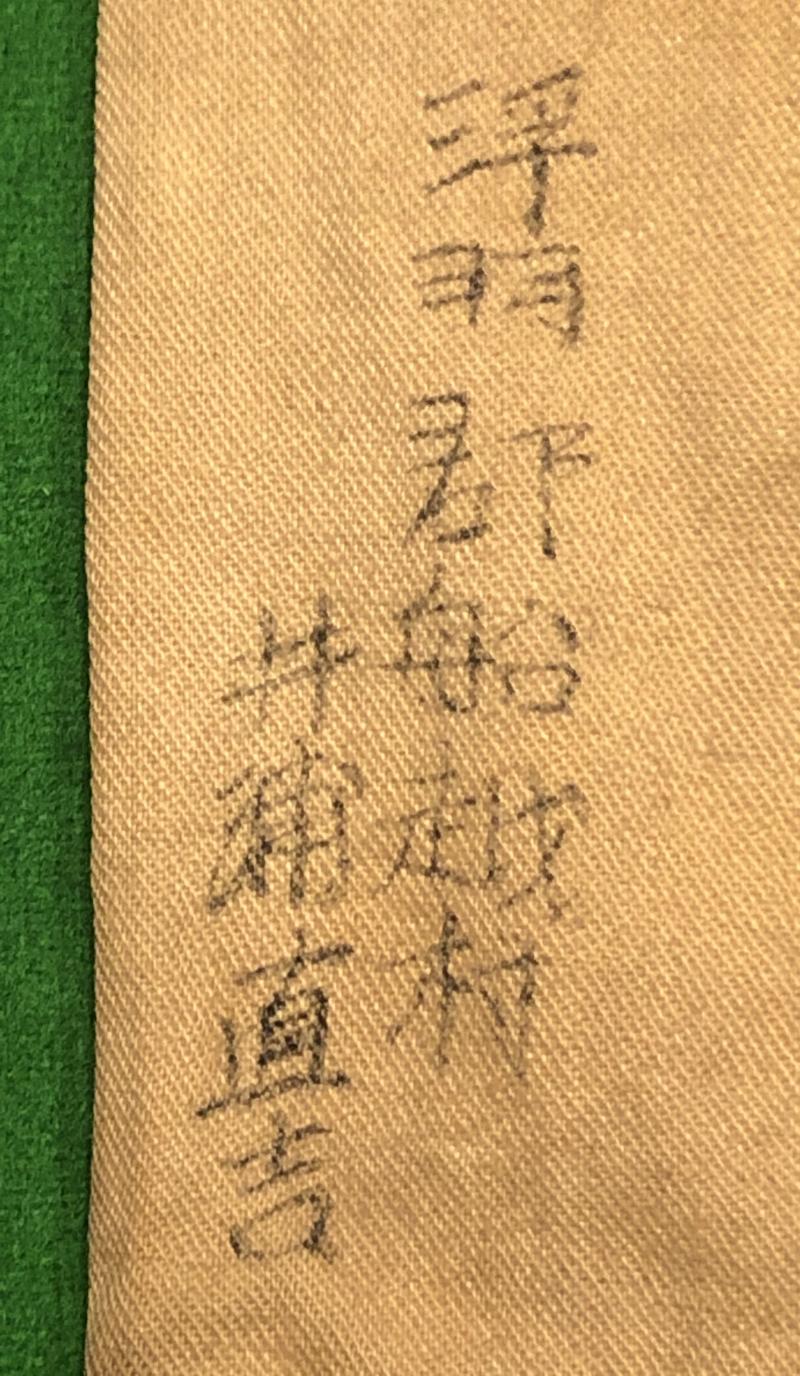 浮羽郡船越村
井浦直吉